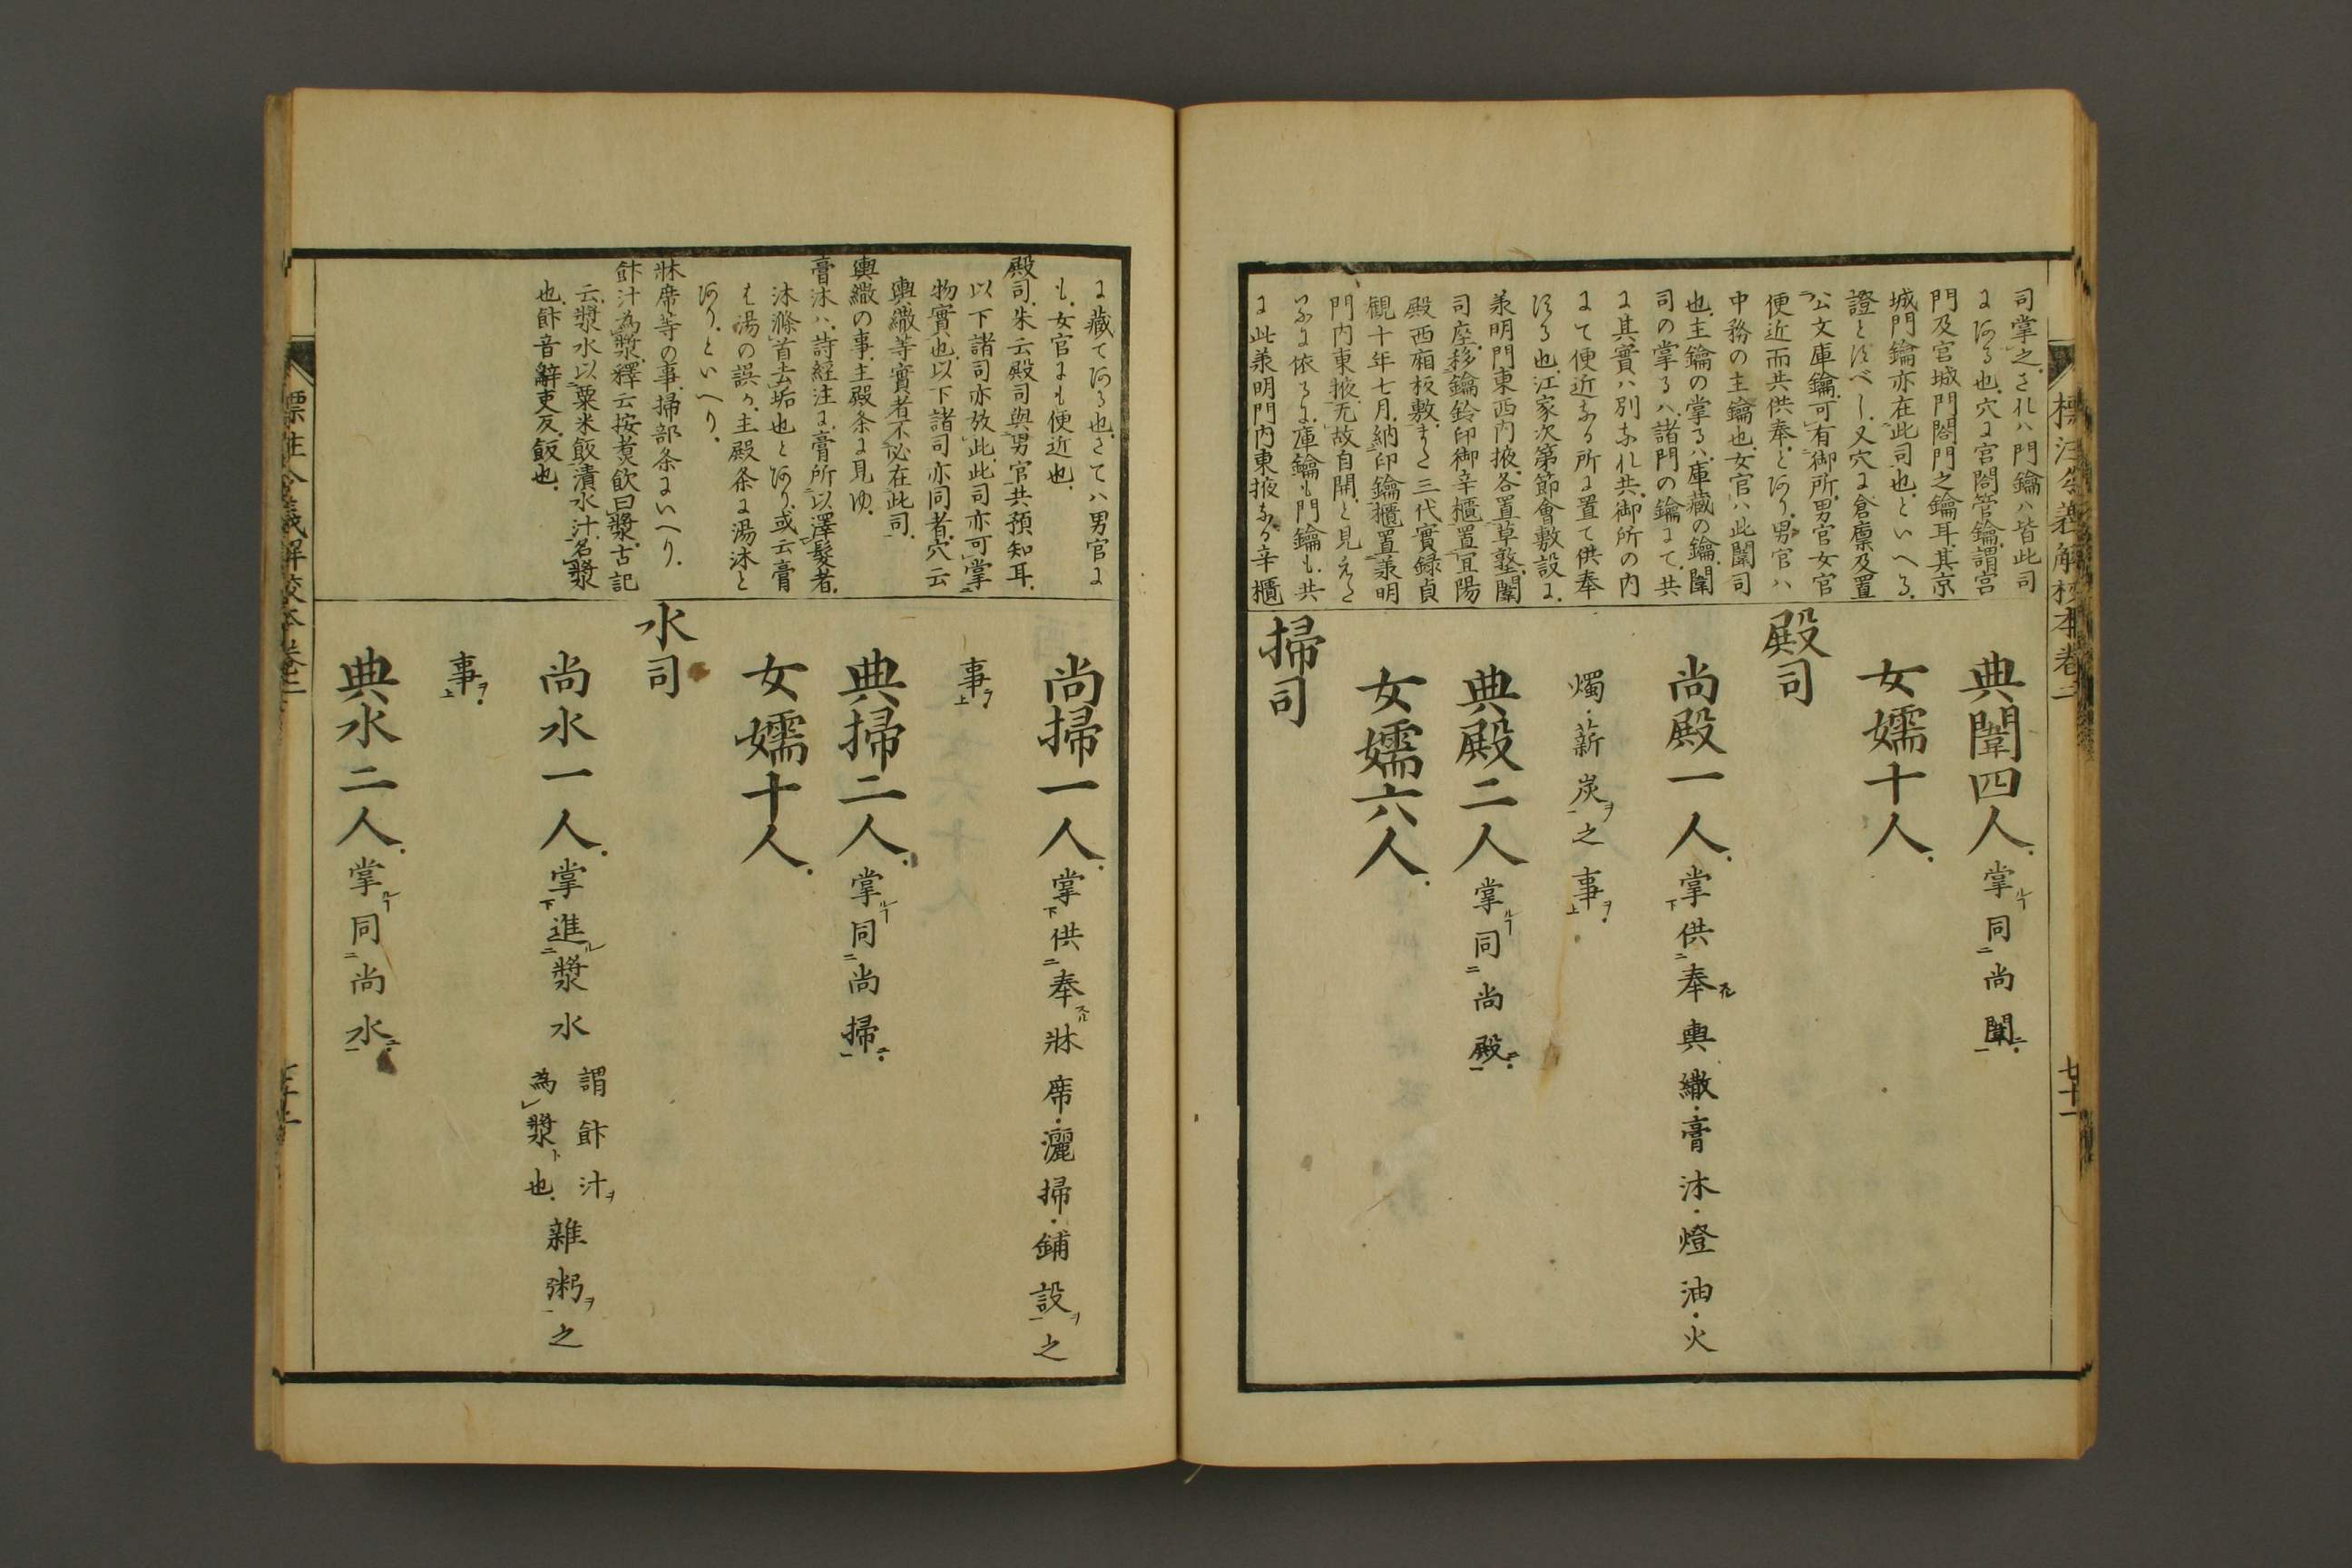 標注令義解校本卷二
七十一
司掌之.されハ門鑰ハ皆此司
にある也.穴に宮閤管鑰.謂宮
門及宮城門閤門之鑰耳.其京
城門鑰亦在此司也.といへる.
證とすべし.又穴に倉廩及置
公文庫鑰.可有御所.男官女官
便近而共供奉.とあり.男官ハ
中務の主鑰也.女官ハ此闈司
也.主鑰の掌るハ.庫藏の鑰.闈
司の掌るハ.諸門の鑰にて.共
に其實ハ別なれ共.御所の内
にて便近なる所に置て供奉
する也.江家次第節會敷設に.
羕明門東西内掖.各置草墪.闈
司座.移鑰鈴印御辛櫃.置宜陽
殿西廂板敷.また三代實録貞
觀十年七月.納印鑰櫃.置羕明
門内東掖.无故自開.と見えた
るに依るに.庫鑰も門鑰も.共
に此羕明門内東掖なる辛櫃
典闈四人.掌同尚闈.
女孺十人.
殿司
尚殿一人.掌供奉輿繖.膏沐.燈油.火
燭.薪炭之事.
典殿二人.掌同尚殿.
女孺六人.
掃司
に藏てある也.さてハ男官に
も.女官にも便近也.
殿司.朱云殿司與男官共預知耳.
以下諸司亦放此.此司亦可掌
物實也.以下諸司亦同者.穴云
輿繖等實者.不必在此司.
輿繖の事.主殿条に見ゆ.
膏沐ハ.詩経注に.膏所以澤髮者.
沐滌首去垢也とあり.或云膏
は湯の誤か.主殿条に湯沐と
あり.といへり.
牀席等の事.掃部条にいへり.
餰汁為漿.釋云按煮飲曰漿.古記
云.漿水以粟米飯漬水汁.名漿
也.餰音辭吏反.飯也.
尚掃一人.掌供奉牀席.灑掃.鋪設之
事.
典掃二人.掌同尚掃.
女孺十人.
水司
尚水一人.掌進漿水謂餰汁為漿也.雜粥之
事.
典水二人.掌同尚水.
標注令義解校本卷二